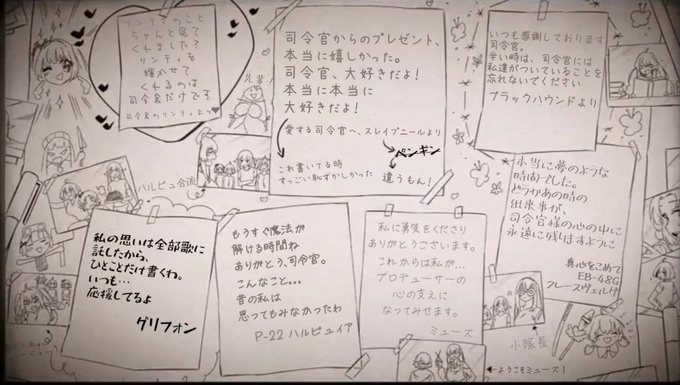 リンティのこと
ちゃんと見て
くれました?
リンティを
輝かせて
くれるのは
司令官だけです
司令官のリンティより
司令官からのプレゼント、
本当に嬉しかった。
司令官、大好きだよ!
本当に本当に
大好きだよ!
愛する司令官へ、スレイプニールより
ペンギン
違うもん!
これ書いてる時
すっごい恥ずかしかった
いつも感謝しております
司令官。
辛い時は、司令官には
私達がついていることを
忘れないでください
ブラックハウンドより
ハルピュ合流
本当に夢のような
時間でした。
どうかあの時の
出来事が、
司令官様の心の中に
永遠に残りますように
真心をこめて
EB-48G
フレースヴェルグ
私の思いは全部歌に
託したから、
ひとことだけ書くわ。
いつも...
応援してるよ
グリフォン
もうすぐ魔法が
解ける時間ね
ありがとう、司令官。
こんなこと...
昔の私は
思ってもみなかったわ
P-22 ハルピュイア
私に勇気をくださり
ありがとうございます。
これからは私が...
プロデューサーの
心の支えに
なってみせます。
ミューズ
小隊長
←ようこそミューズ!